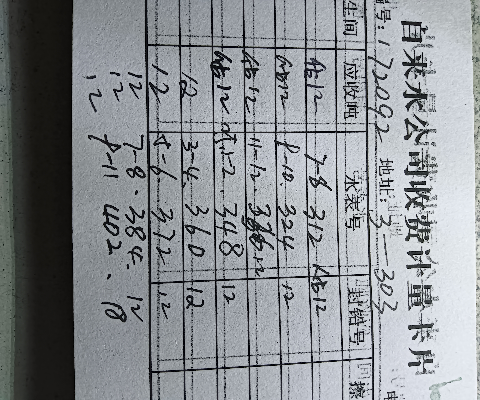 自来水公司收费计量卡片
号: 172092 地址: 3—303
生间 应收吨 水表号 封铅号
估12 7-8 312 估12
估12 8-10. 324 12
估12 11-12 336 12
估12 1-2. 348 12
12 3-4. 360 12
12 5-6. 372 12
12 7-8. 384. 12
12 402. 8
12